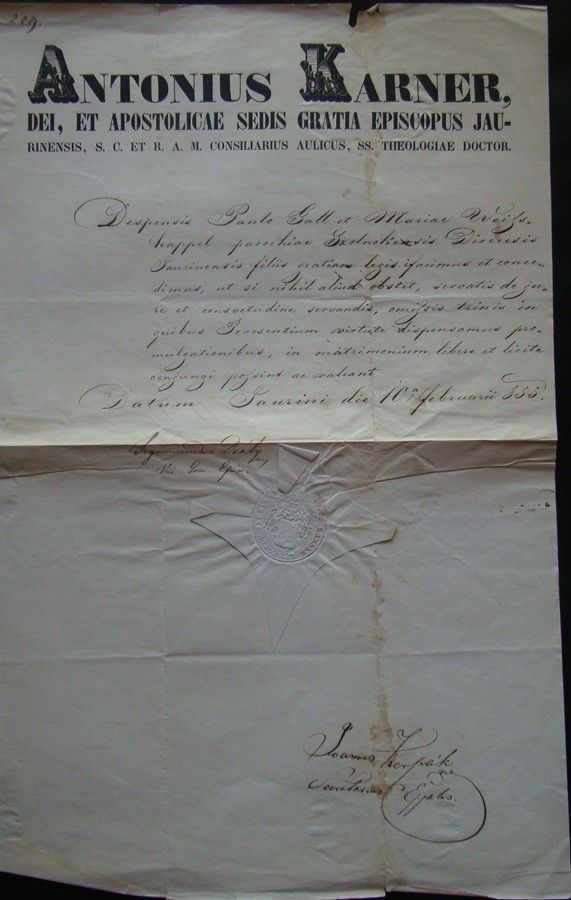 209.
ANTONIUS KARNER,
DEI, ET APOSTOLICAE SEDIS GRATIA EPISCOPUS JAU-
RINENSIS, S. C. ET R. A. M. CONSILIARIUS AULICUS, SS. THEOLOGIAE DOCTOR.
Desponsis Paulo Gall et Mariae Weiss-
kappel parochiae Diocesis
Jaurinensis filiis oratiam legis facimus et conce-
dimus, ut si nihil aliud obstet, servatis de ju-
re et consvetudine servandis, omissis trinis in
quibus Praesentium virtute dispensamus pro-
mulgationibus, in matrimonium libere et licite
conjungi possint ac valeant
Datum Jaurini die 10a februarii 855.
Deáky
Vic. Gen. Eppus.
KARNER
Joannes
Secretarius Eppalis.